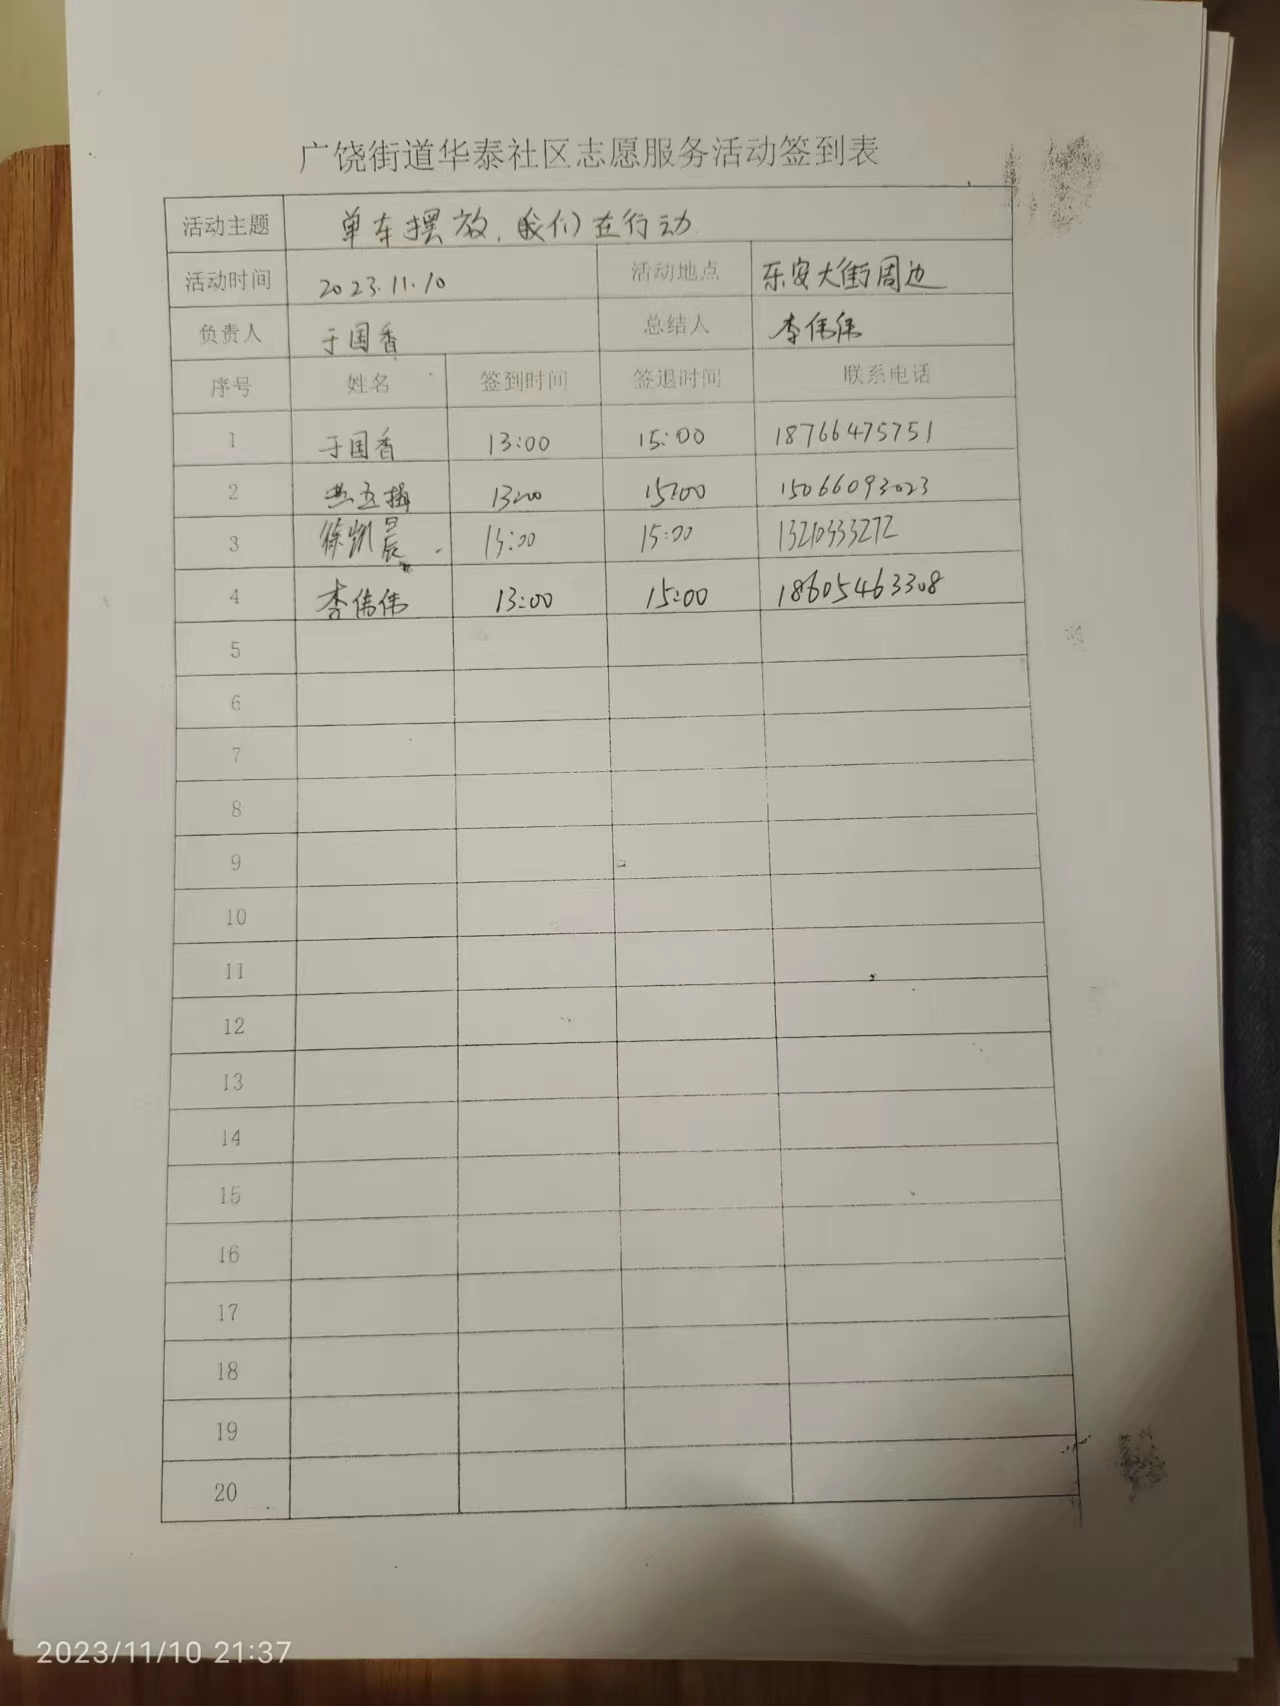 广饶街道华泰社区志愿服务活动签到表
活动主题 单车摆放，我们在行动
活动时间 2023.11.10 活动地点 乐安大街周边
负责人 于国香 总结人 李伟伟
序号 姓名 签到时间 签退时间 联系电话
1 于国香 13:00 15:00 18766475751
2 13:00 15:00 15066093023
3 徐凯晨 13:00 15:00 13210333272
4 李伟伟 13:00 15:00 18605463308
5
6
7
8
9
10
11
12
13
14
15
16
17
18
19
20
2023/11/10 21:37